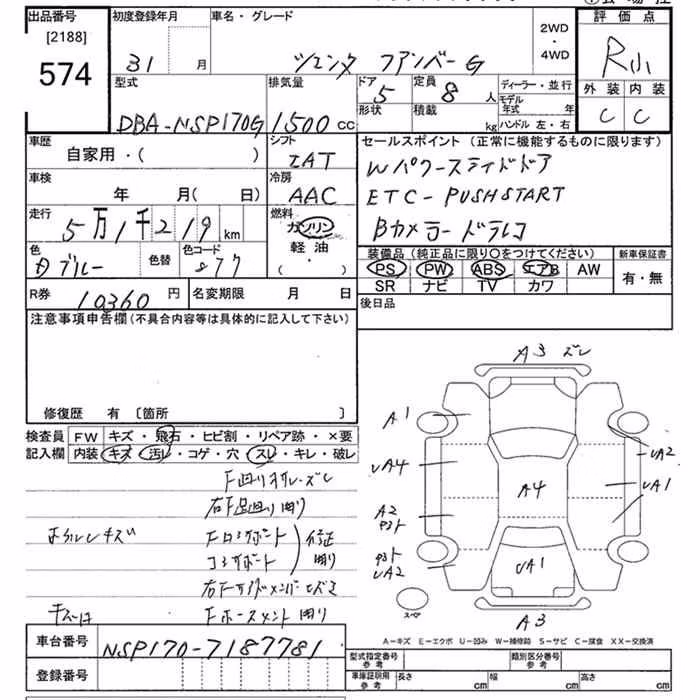 出品番号
[2188]
574
初度登録年月
31 月
車名・グレード
シエンタ ファンベーG
2WD
・
4WD
評価点
R小
外装 内装
C C
型式
DBA-NSP170G
排気量
1500 CC
ドア
5
定員
8 人
形状
積載
kg
ディーラー・並行
モデル年式 年
ハンドル 左・右
車歴
自家用・( )
シフト
IAT
車検
年 月( 日)
冷房
AAC
走行
5万1千219 km
燃料
ガソリン
軽油
( ・ )
色
ブルー
色替
色コード
877
R券
10360 円
名変期限 月 日
セールスポイント (正常に機能するものに限ります)
Wパワースライドドア
ETC-PUSHSTART
Bカメラードラレコ
装備品 (純正品に限り〇をつけてください)
PS PW ABS エアB AW
SR ナビ TV カワ
新車保証書
有・無
後日品
注意事項申告欄(不具合内容等は具体的に記入して下さい)
修復歴 有 〔箇所 〕
検査員記入欄
FW キズ・飛石・ヒビ割・リペア跡・×要
内装 キズ・汚レ・コゲ・穴・スレ・キレ・破レ
右F足廻り曲り
Fロアサポート
コアサポート
修正
曲り
Fホースメント曲り
A3 ズレ
A1
UA4
A2
UA2
A4
UA2
UA1
UA1
A3
スペア
A-キズ E-エクボ U-凹み W-補修跡 S-サビ C-腐食 XX-交換済
車台番号
NSP170-7187781
登録番号
型式指定番号
参考
類別区分番号
参考
車庫証明用
参考
長さ cm
幅 cm
高さ cm